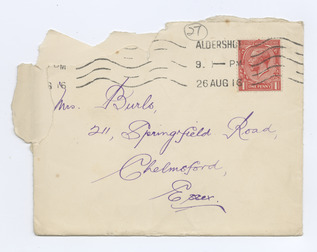 27
ALDERSHO
9. — PM
26 AUG 16
PM
G 16
ONE PENNY
Mrs. Burls,
211, Springfield Road,
Chelmsford,
Essex.